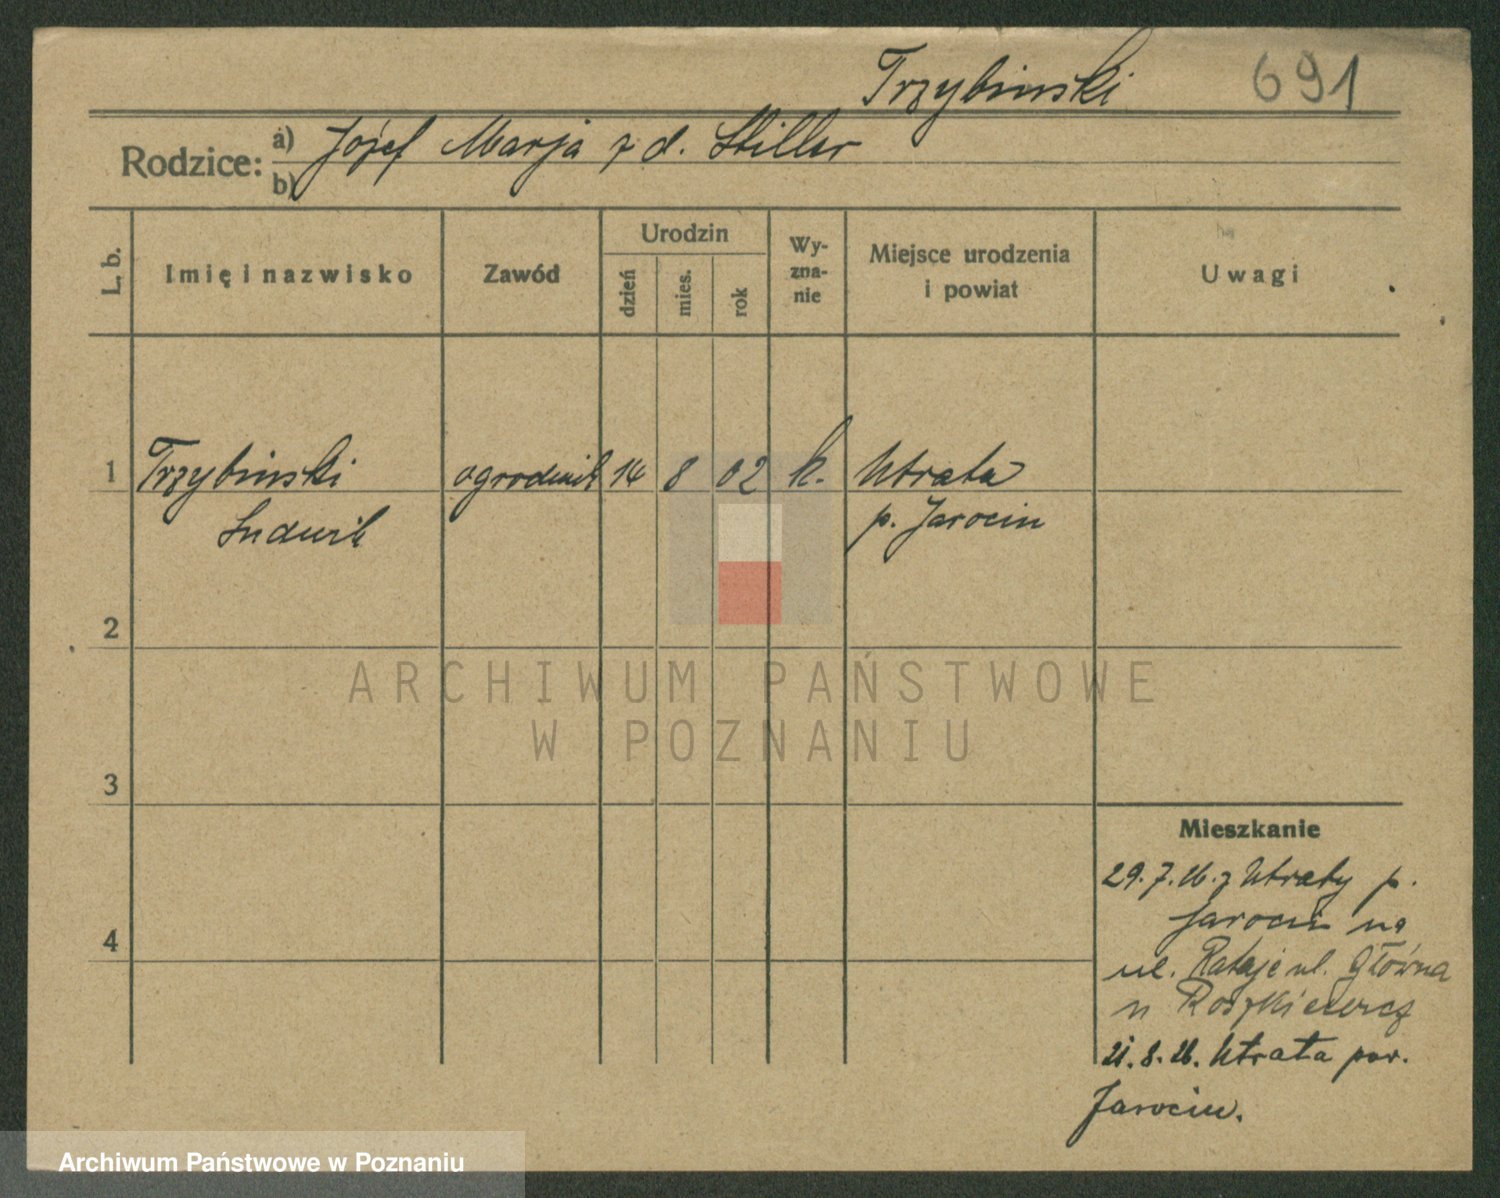 Trzybinski 691
Rodzice: a) Józef Marja z d. Stiller
b)
L. b. Imię i nazwisko Zawód Urodzin dzień mies. rok Wyzna-nie Miejsce urodzenia i powiat Uwagi
1 Trzybinski ogrodnik 14 8 02 k. Utrata
Ludwik p. Jarocin
2
ARCHIWUM PAŃSTWOWE
W POZNANIU
3
Mieszkanie
29.7.26. z Utraty p.
Jarocin na
4
ul. Rataje ul. Główna
u
21.8.26. Utrata pow.
Jarocin.
Archiwum Państwowe w Poznaniu